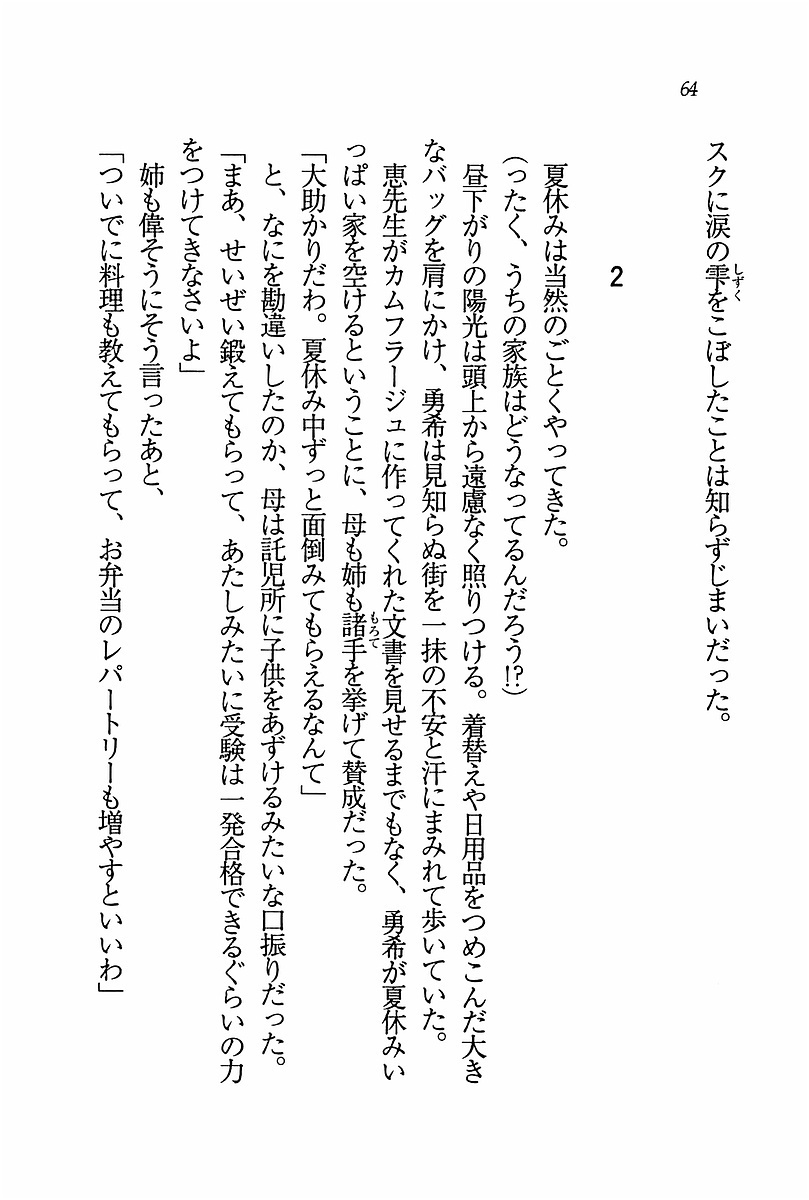 64
スクに涙の雫をこぼしたことは知らずじまいだった。
しずく
2
夏休みは当然のごとくやってきた。
(ったく、うちの家族はどうなってるんだろう!?)
昼下がりの陽光は頭上から遠慮なく照りつける。着替えや日用品をつめこんだ大き
なバッグを肩にかけ、勇希は見知らぬ街を一抹の不安と汗にまみれて歩いていた。
恵先生がカムフラージュに作ってくれた文書を見せるまでもなく、勇希が夏休みい
っぱい家を空けるということに、母も姉も諸手を挙げて賛成だった。
もろて
「大助かりだわ。夏休み中ずっと面倒みてもらえるなんて」
と、なにを勘違いしたのか、母は託児所に子供をあずけるみたいな口振りだった。
「まあ、せいぜい鍛えてもらって、あたしみたいに受験は一発合格できるぐらいの力
をつけてきなさいよ」
姉も偉そうにそう言ったあと、
「ついでに料理も教えてもらって、お弁当のレパートリーも増やすといいわ」